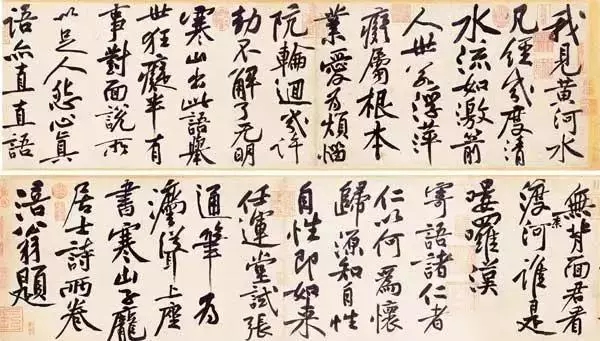 我見黃河水
凡經幾度清
水流如激箭
人世若浮萍
癡屬根本
業愛為煩惱
阬輪迴幾許
劫不解了无明
寒山出此語舉
世狂癡半有
事對面說所
以足人悲心真
語亦直直語
無背面君看
渡奈河誰是
嘍羅漢
寄語諸仁者
仁以何為懷
歸源知自性
自性即如來
任運堂試張
通筆為
灋聳上座
書寒山子龐
居士詩兩卷
涪翁題